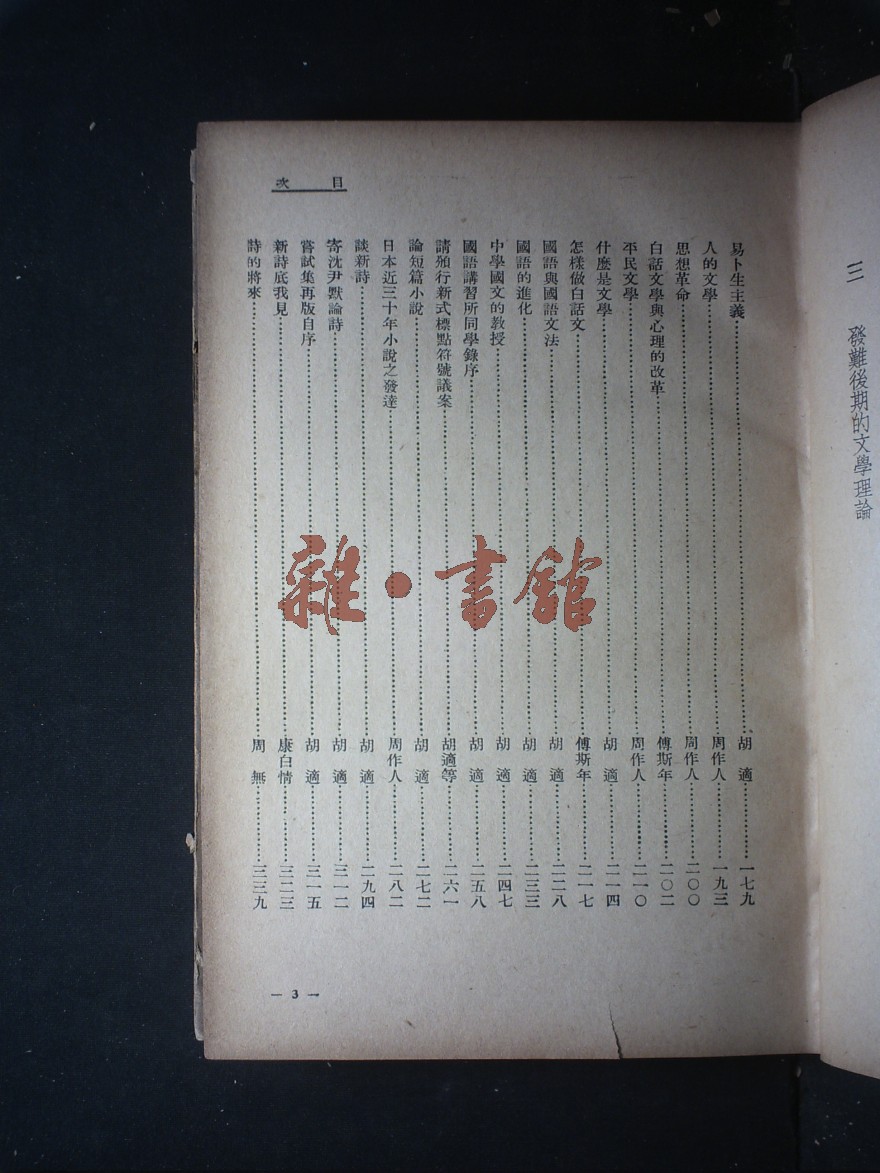 三　發難後期的文學理論
目次
易卜生主義……胡適……一七九
人的文學……周作人……一九三
思想革命……周作人……二〇〇
白話文學與心理的改革……傅斯年……二〇二
平民文學……周作人……二一〇
什麼是文學……胡適……二一四
怎樣做白話文……傅斯年……二一七
國語與國語文法……胡適……二二八
國語的進化……胡適……二三三
中學國文的教授……胡適……二四七
國語講習所同學錄序……胡適……二五八
請頒行新式標點符號議案……胡適等……二六一
論短篇小說……胡適……二七二
日本近三十年小說之發達……周作人……二八二
談新詩……胡適……二九四
寄沈尹默論詩……胡適……三一二
嘗試集再版自序……胡適……三一五
新詩底我見……康白情……三二三
詩的將來……周無……三三九
— 3 —
雜·書館